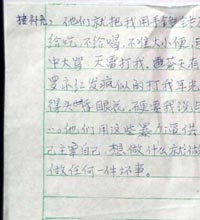 接补充：他们就把我用手铐
给吃，不给喝，不准大小便，
中大骂，天雷打我，
罗永红发疯似的打我耳光
得头晕眼花，硬要我说
…他们用这些暴力逼供
己主宰自己，想做什么就做
做任何一件坏事。